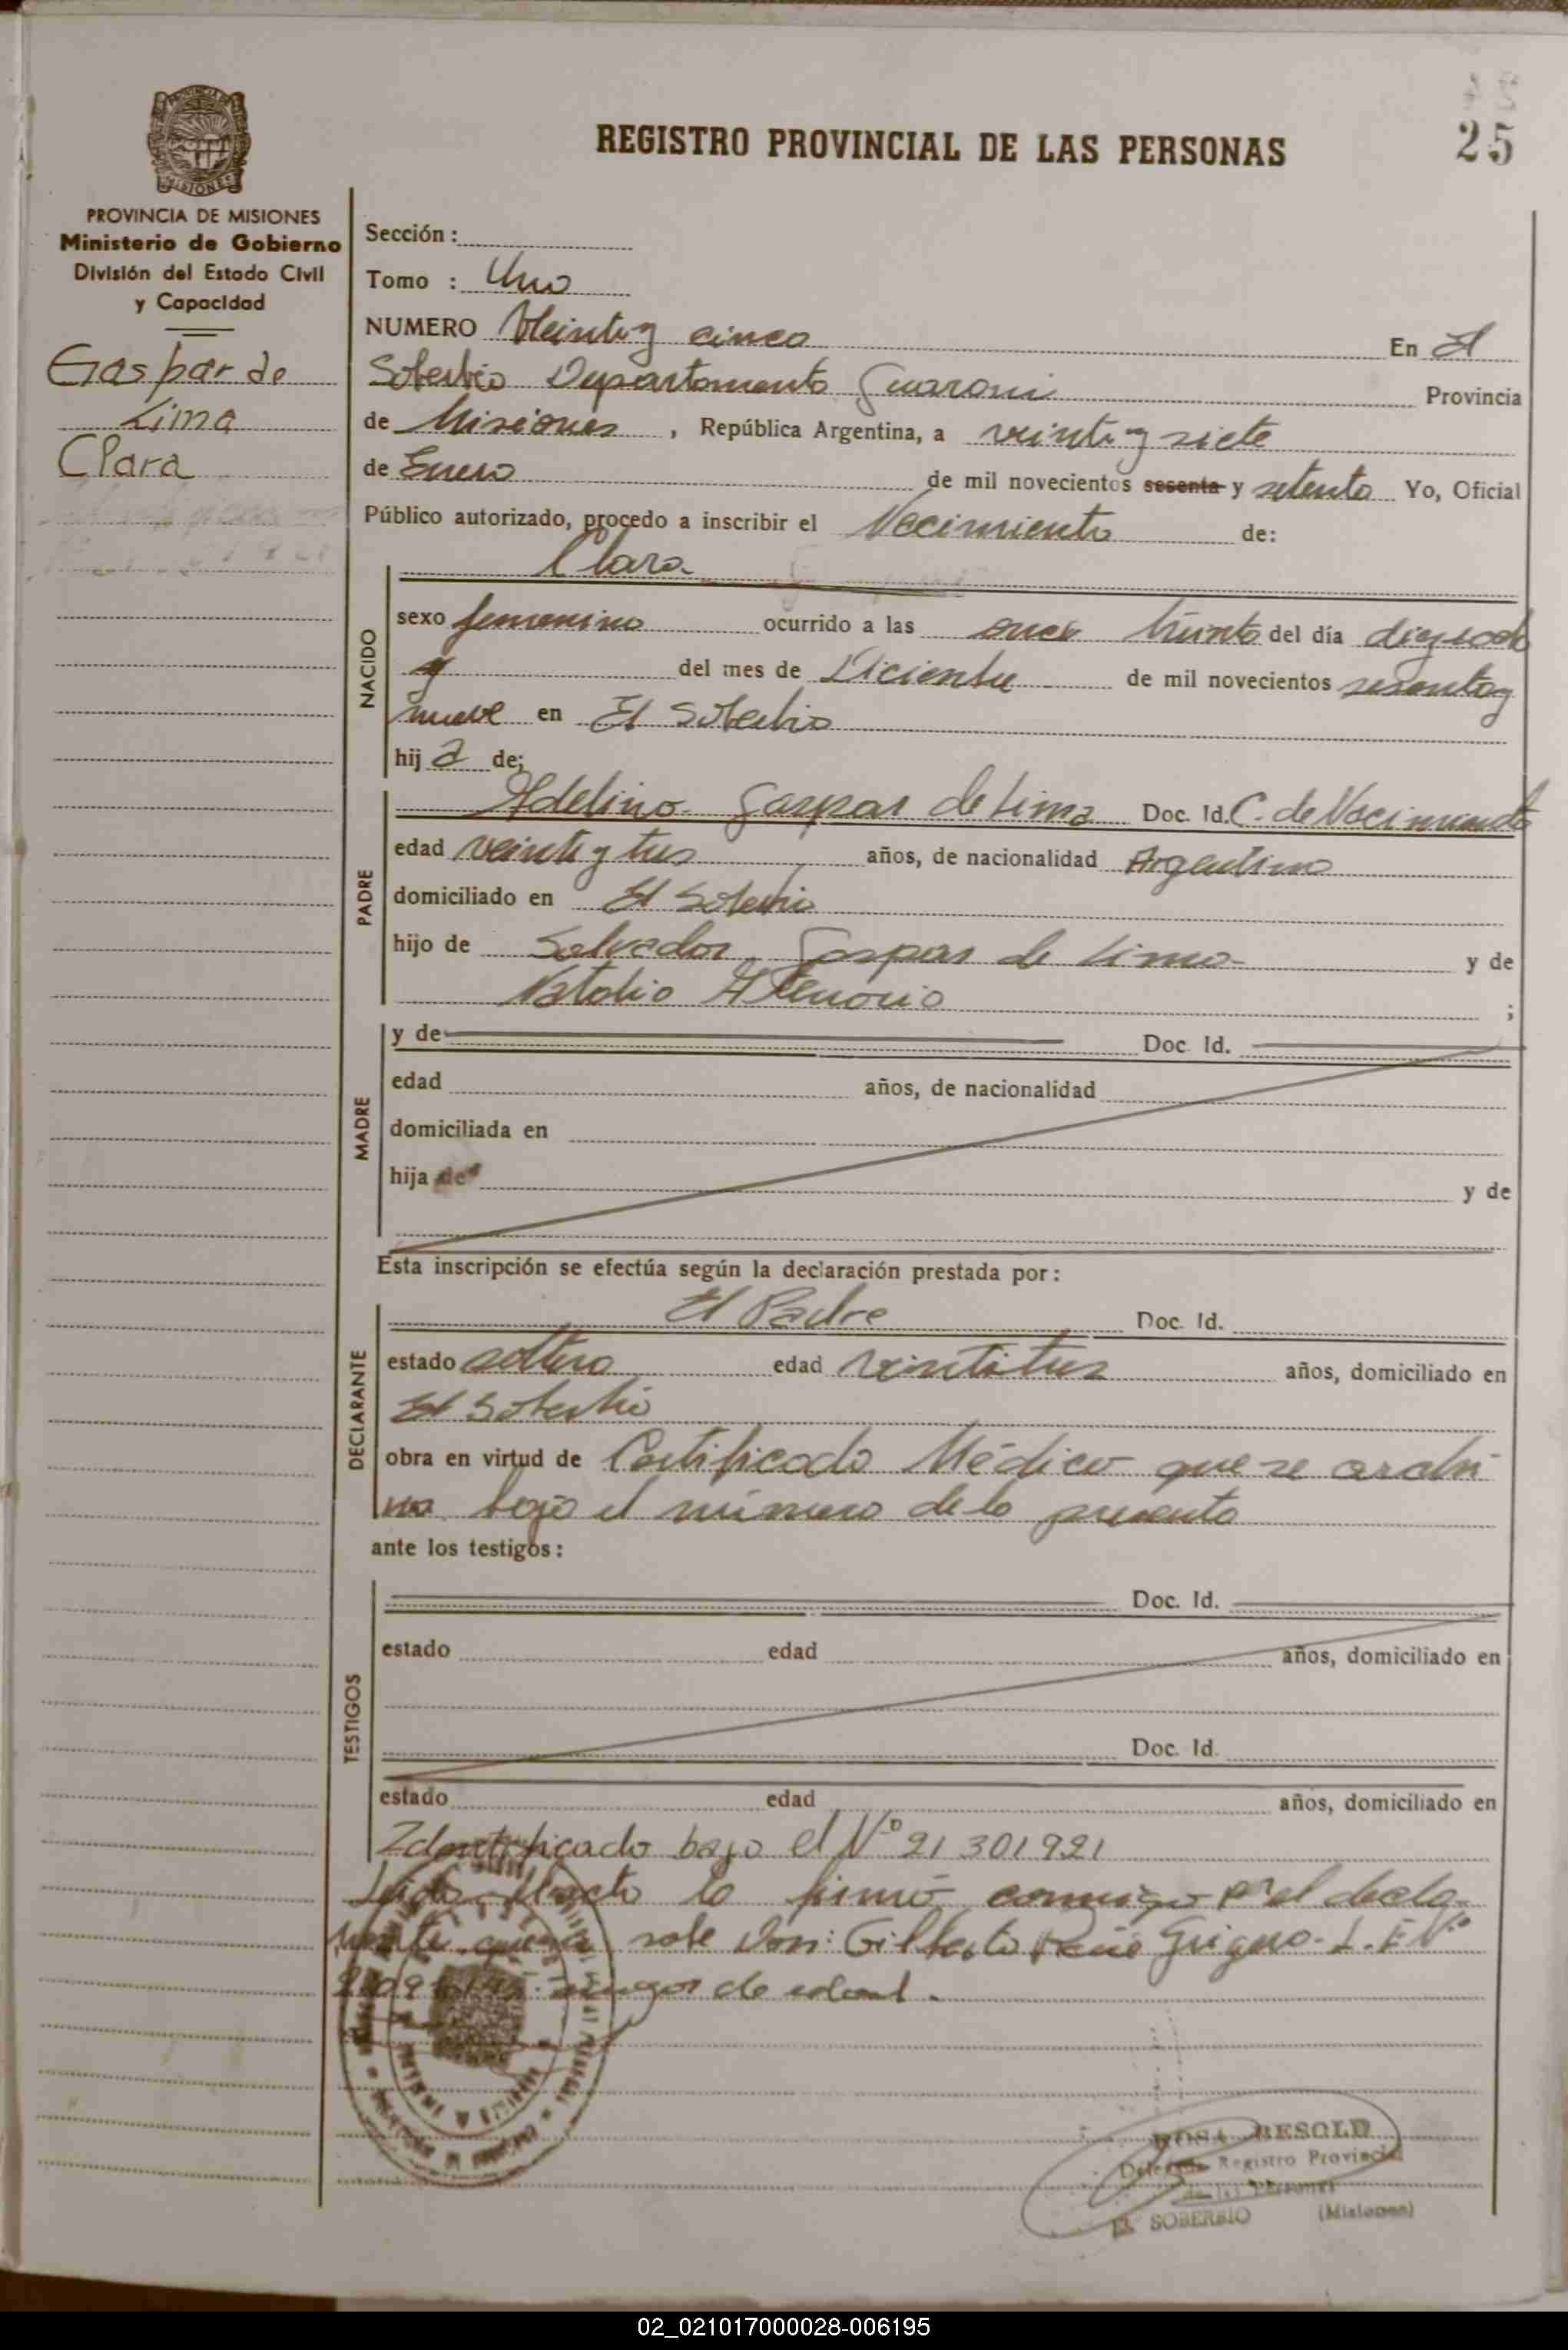 REGISTRO PROVINCIAL DE LAS PERSONAS
25
PROVINCIA DE MISIONES
Ministerio de Gobierno
División del Estado Civil
y Capacidad
Gaspar de
Lima
Clara
Sección :
Tomo : Uno
NUMERO Veinte y cinco En El
Soberbio Departamento Guarani Provincia
de Misiones , República Argentina, a veinte y siete
de Enero de mil novecientos sesenta y setenta Yo, Oficial
Público autorizado, procedo a inscribir el Nacimiento de:
Clara
NACIDO
sexo femenino ocurrido a las once treinta del día dieciocho
del mes de Diciembre de mil novecientos sesenta y
nueve en El Soberbio
hij a de;
PADRE
Adelino Gaspar de Lima Doc. Id. C. de Nacimiento
edad veinte y tres años, de nacionalidad Argentino
domiciliado en El Soberbio
hijo de Salvador Gaspar de Lima y de
Natalia ;
MADRE
y de Doc. Id.
edad años, de nacionalidad
domiciliada en
hija de
y de
Esta inscripción se efectúa según la declaración prestada por :
DECLARANTE
El Padre Doc. Id.
estado soltero edad veintitres años, domiciliado en
El Soberbio
obra en virtud de Certificado Médico que se archi
va bajo el número de la presente
ante los testigos :
TESTIGOS
Doc. Id.
estado edad años, domiciliado en
Doc. Id.
estado edad años, domiciliado en
Identificado bajo el Nº 21 301 921
Leida el acta la firmó conmigo p' el decla
rante que no sabe Don: Gilberto L. E Nº
mayor de edad.
ROSA BESOLD
Delegada Registro Provincial
de las Personas
EL SOBERBIO (Misiones)
02_021017000028-006195